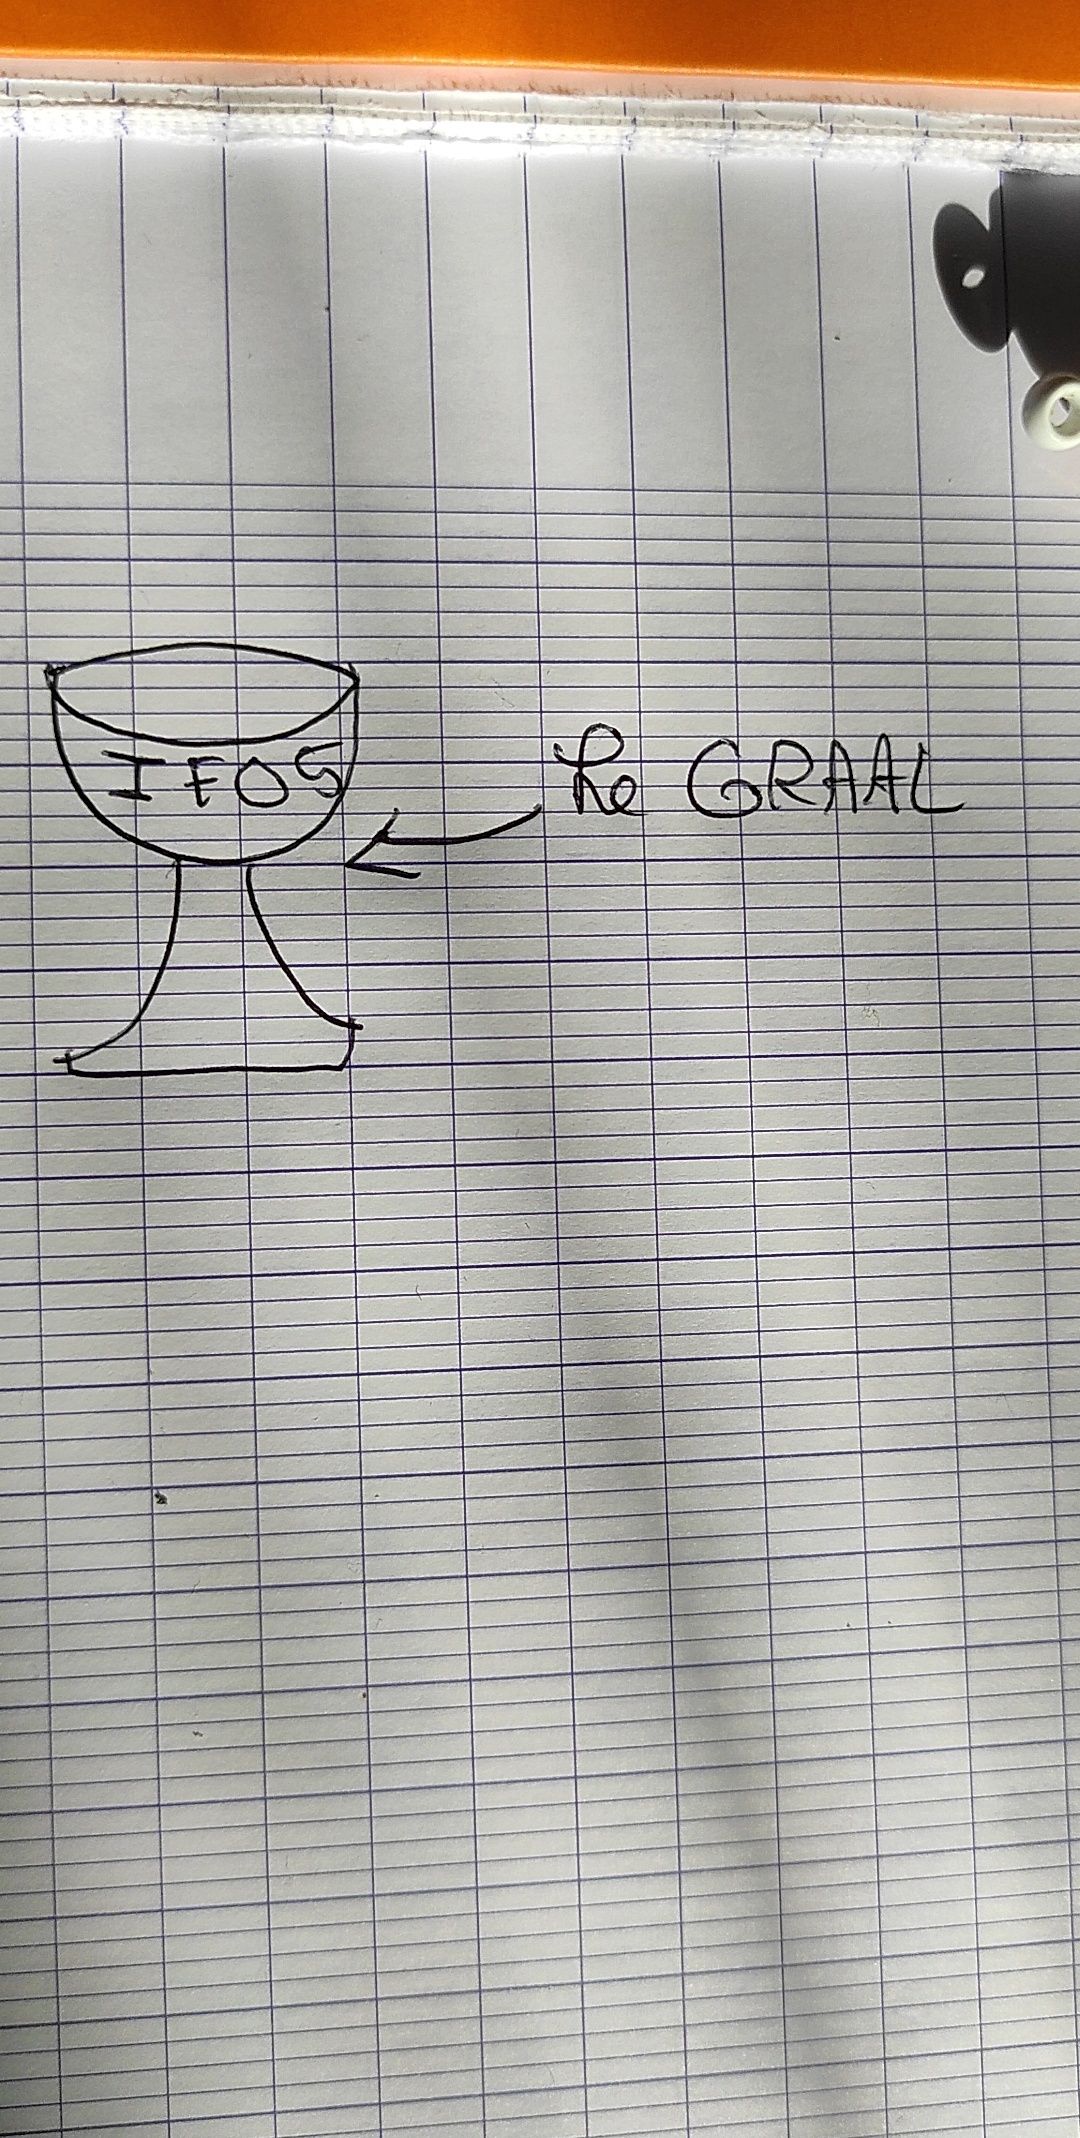 IFOS
Le GRAAL